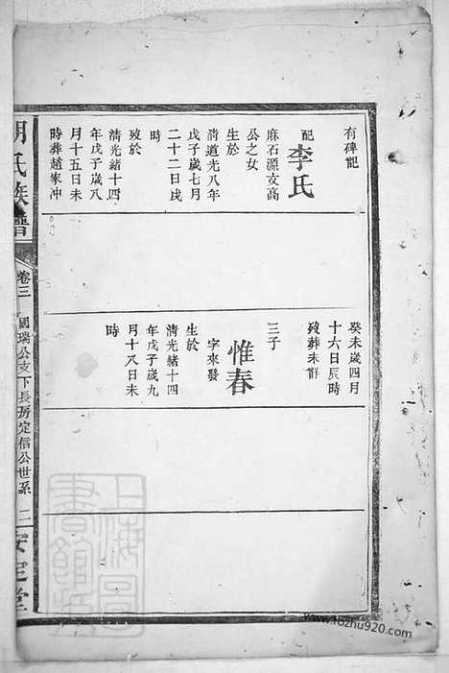 有碑記
配
李氏
麻石源文高
公之女
生於
清道光八年
戊子歲七月
二十二日戌
時
歿於
清光緒十四
年戊子歲八
月十五日未
時葬趙家冲
癸未歲四月
十六日辰時
歿葬未詳
三子
惟春
字來發
生於
清光緒十四
年戊子歲九
月十八日未
時
胡氏族譜
卷三
國瑞公支下長房定信公世系
二
安定堂
上海圖書館藏
www.18zhu920.com